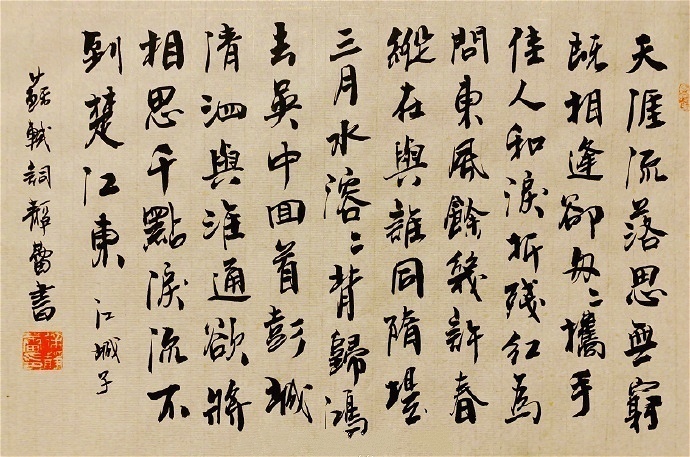 天涯流落思無窮
既相逢卻匆〻攜手
佳人和淚折残紅為
問東風餘幾許春
縱在與誰同隋堤
三月水溶〻背歸鴻
去吳中回首彭城
清泗與淮通欲將
相思千點淚流不
到楚江東 江城子
蘇軾詞 書